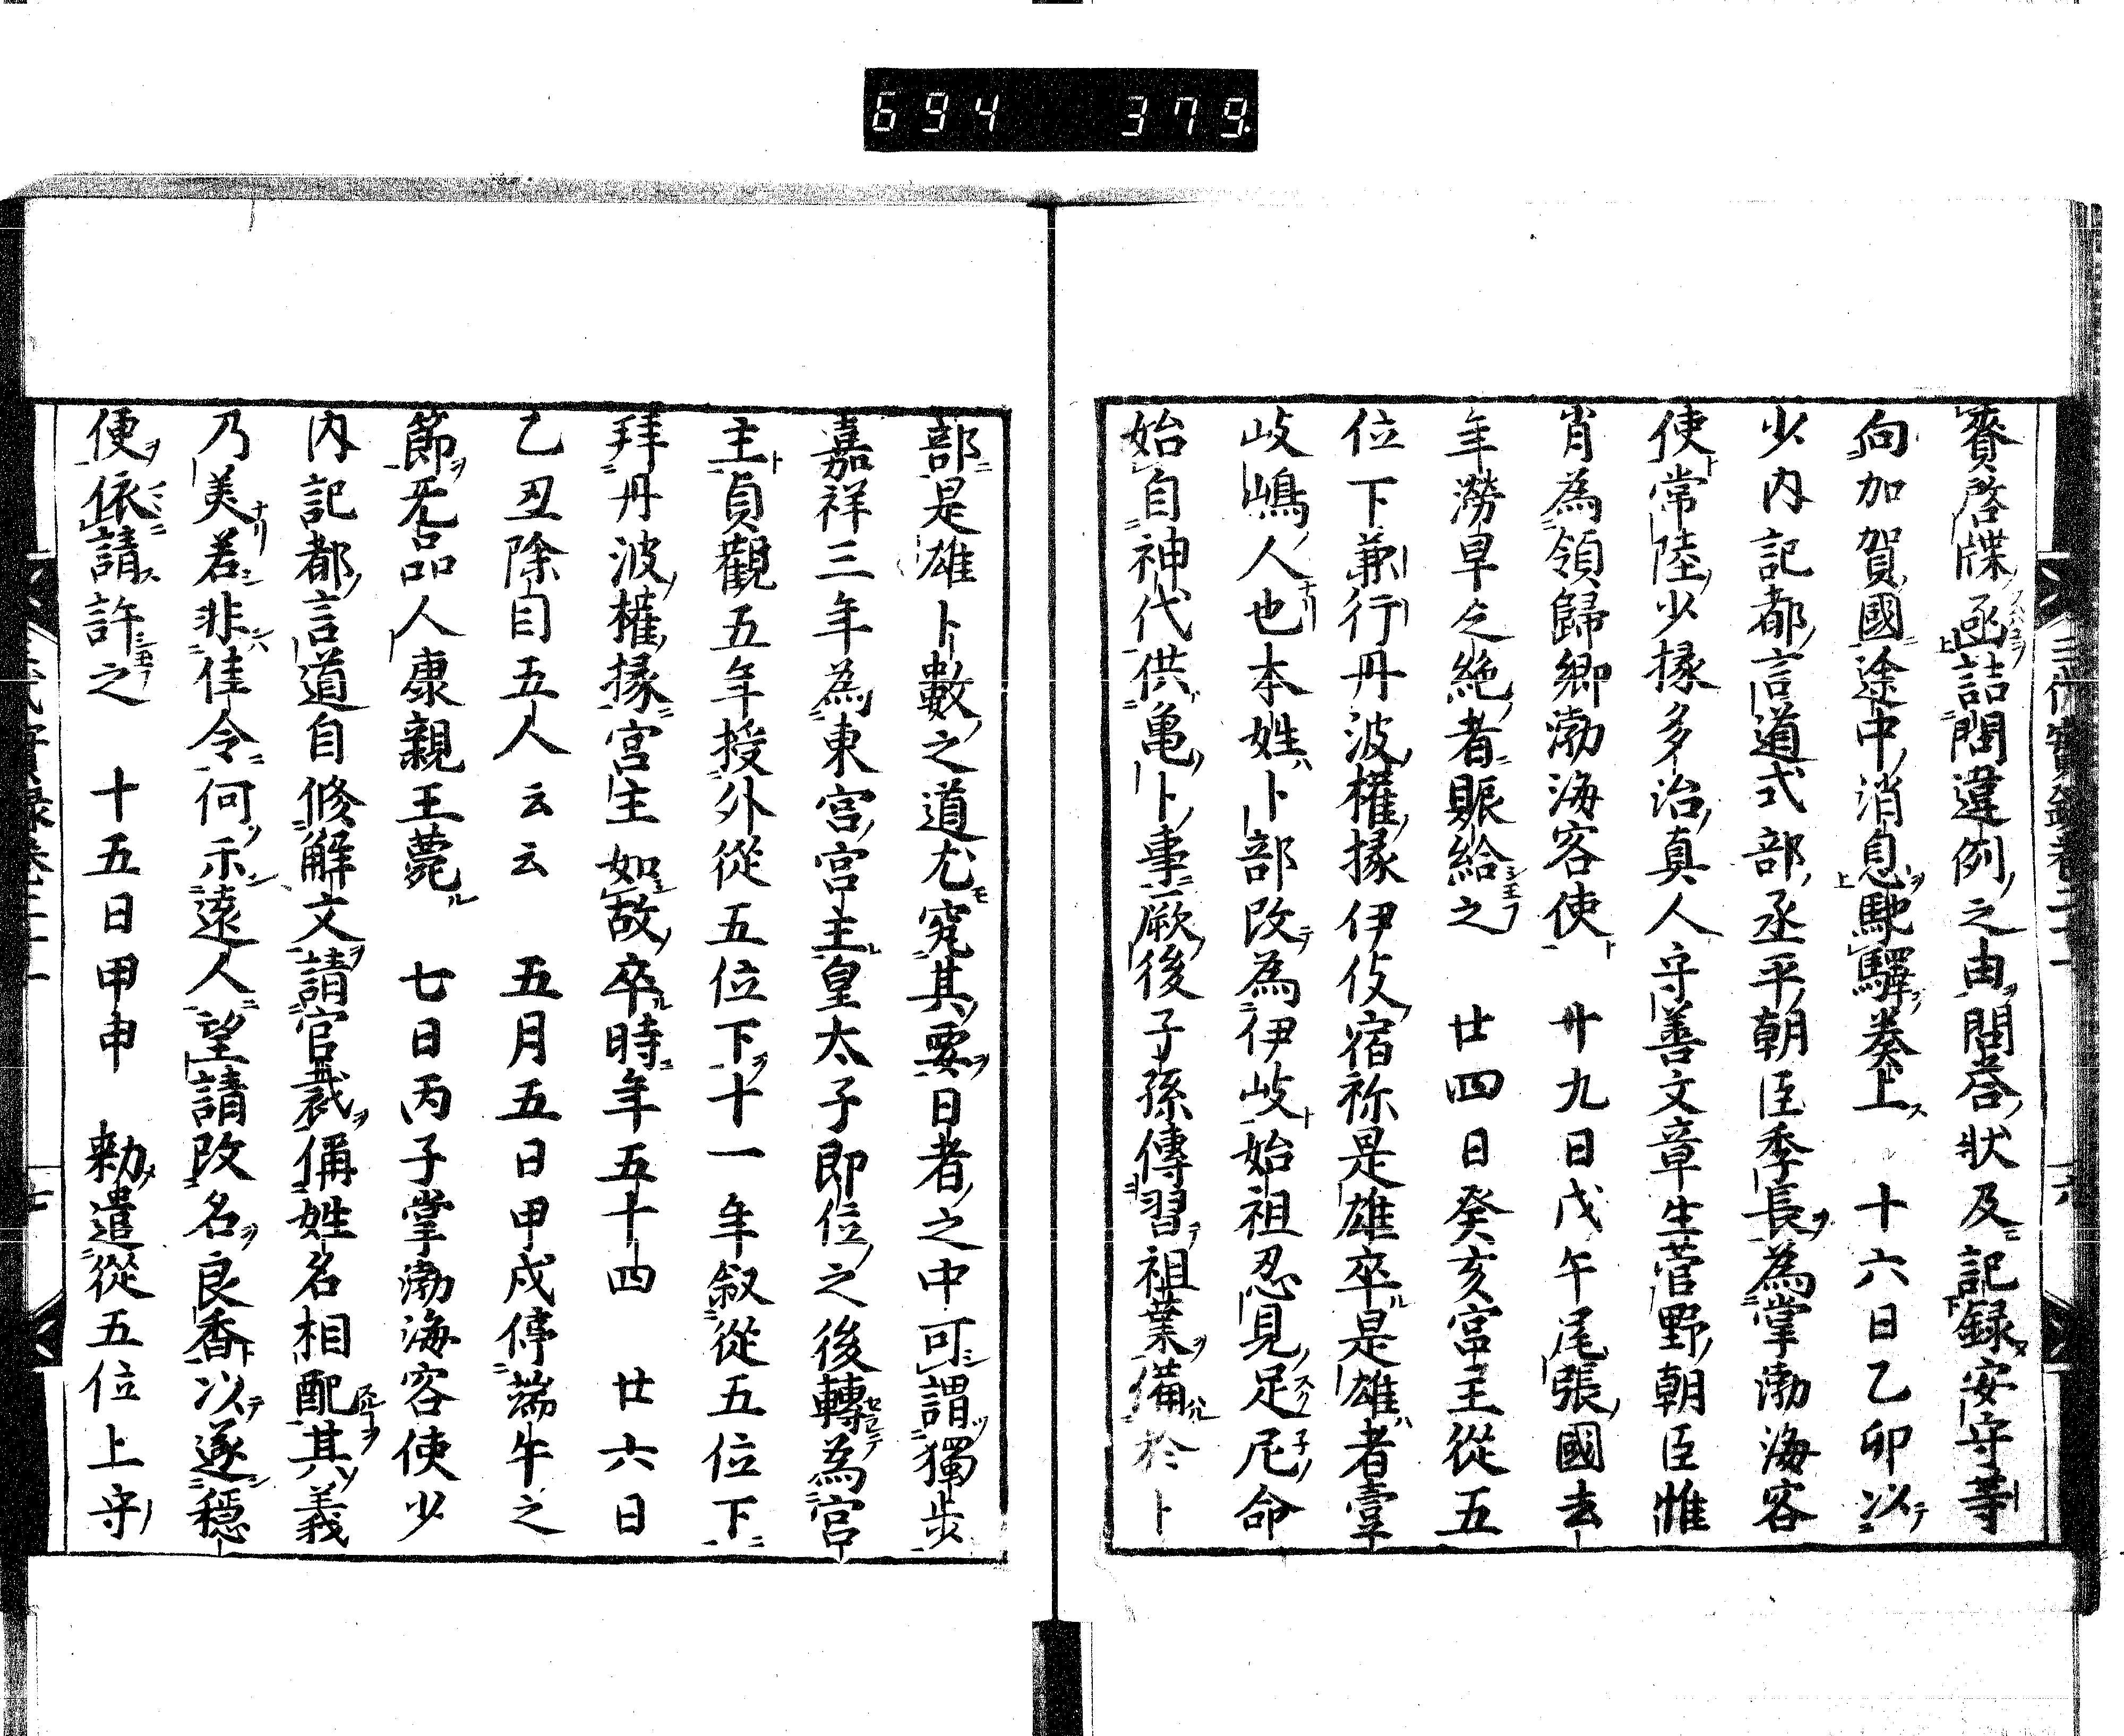 694 379.
賚啓牒亟詰問違例之由問荅狀及記録安守等
向加賀國途中消息馳驛奏上 十六日乙卯以
少内記都言道式部丞平朝臣季長為掌渤海客
使常陸少掾多治真人守善文章生菅野朝臣惟
肖為領歸郷渤海客使 廾九日戊午尾張國去
年澇旱乏絶者賑給之 廿四日癸亥宮主從五
位下兼行丹波權掾伊伎宿祢是雄卒是雄者壹
岐嶋人也本姓卜部改為伊岐始祖忍見足尼命
始自神代供亀卜事厥後子孫傳習祖業備於卜
部是雄卜數之道尤究其要日者之中可謂獨歩
嘉祥三年為東宮宮主皇太子即位之後轉為宮
主貞觀五年授外從五位下十一年叙從五位下
拜丹波權掾宮主如故卒時年五十四 廿六日
乙丑除目五人云云 五月五日甲戌停端午之
節无品人康親王薨 七日丙子掌渤海客使少
内記都言道自修解文請官裁偁姓名相配其義
乃美若非佳令何示遠人望請改名良香以遂穩
便依請許之 十五日甲申 勅遣從五位上守